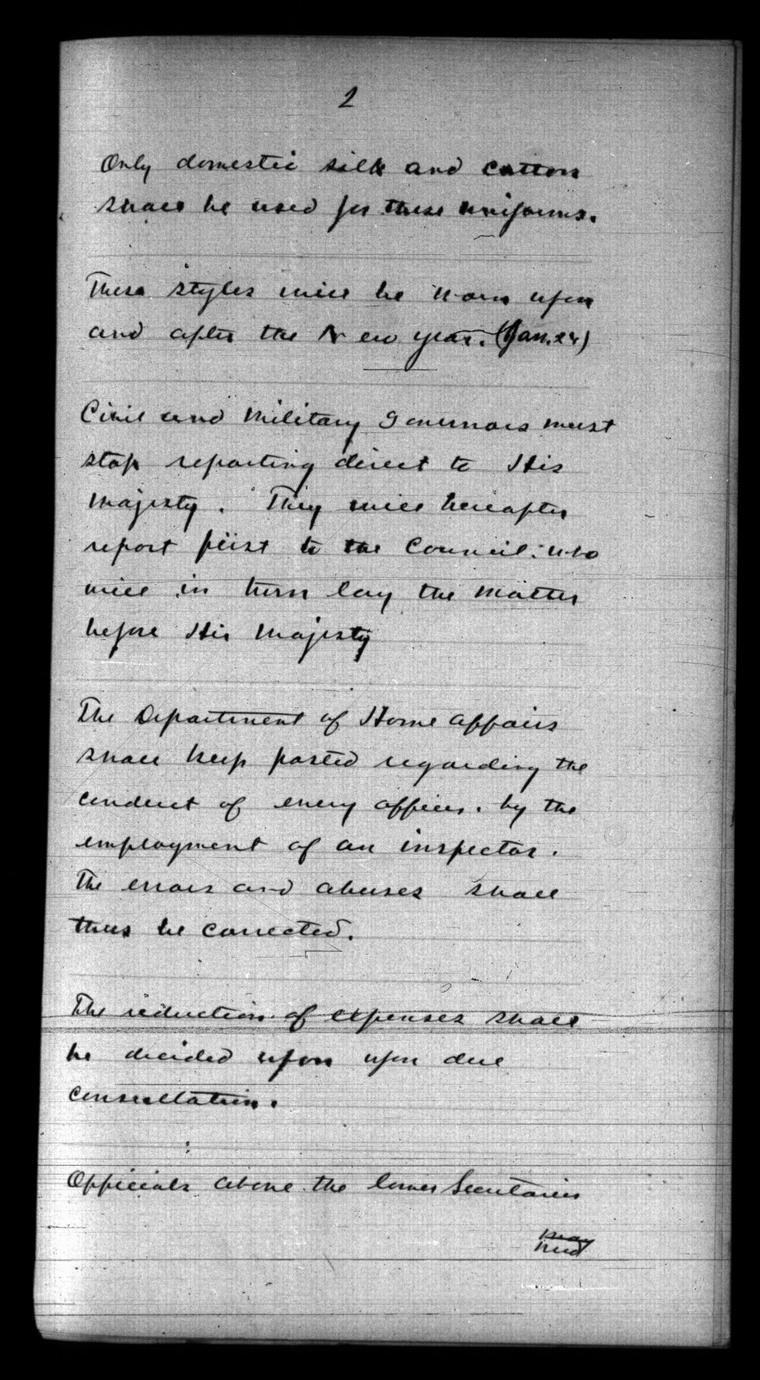 2
Only domestic silk and cotton
shall be used for these uniforms.
These styles will be worn upon
and after the New year. (Jan. 24)
Civil and Military Governors must
stop reporting direct to His
Majesty. They will hereafter
report first to the Council: who
will in turn lay the matter
before His Majesty
The Department of Home affairs
shall keep posted regarding the
conduct of every officer. by the
employment of an inspector.
The errors and abuses shall
thus be corrected.
The reduction of expenses shall
be decided upon upon due
consultation.
Officials above the lower Secretaries